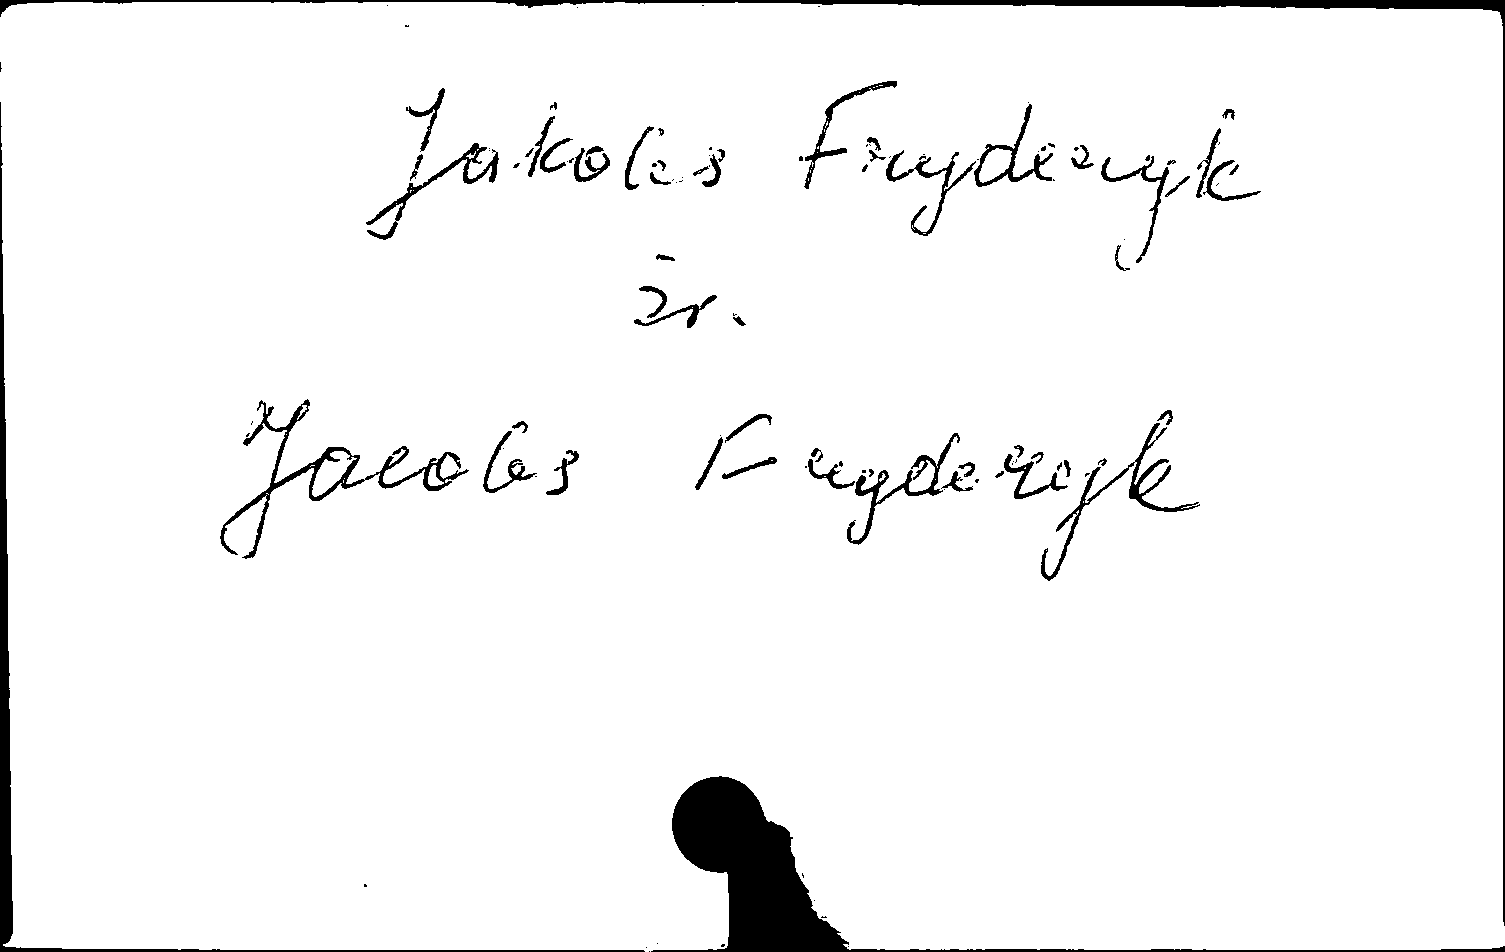 Jakobs Fryderyk
žr.
Jacobs Fryderyk